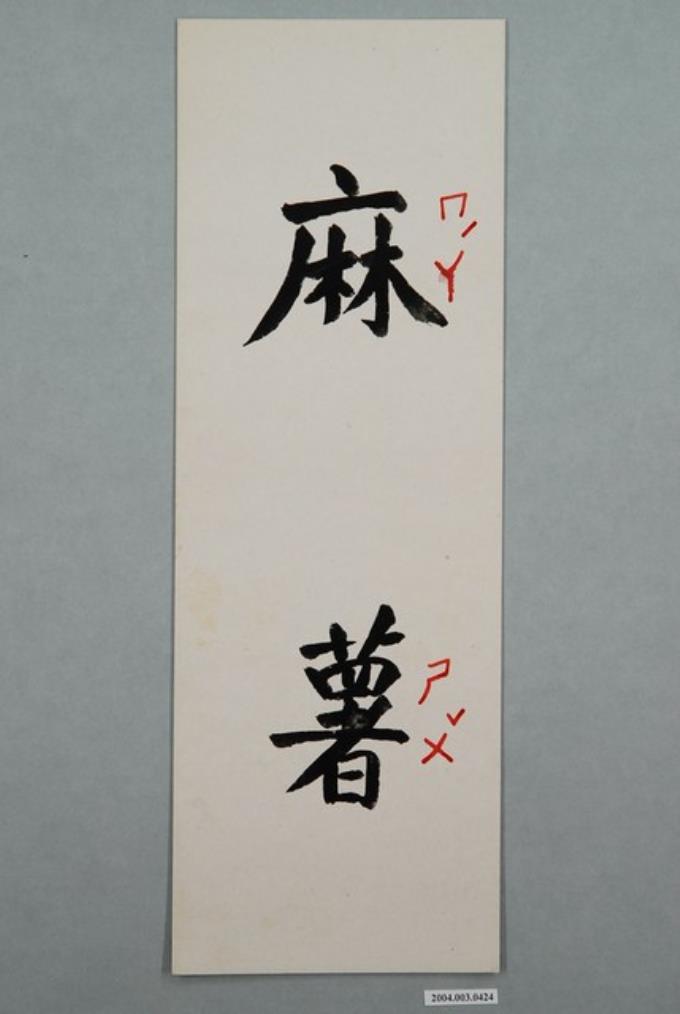 麻 ㄇㄚˊ
薯 ㄕㄨˇ
2004.003.0424